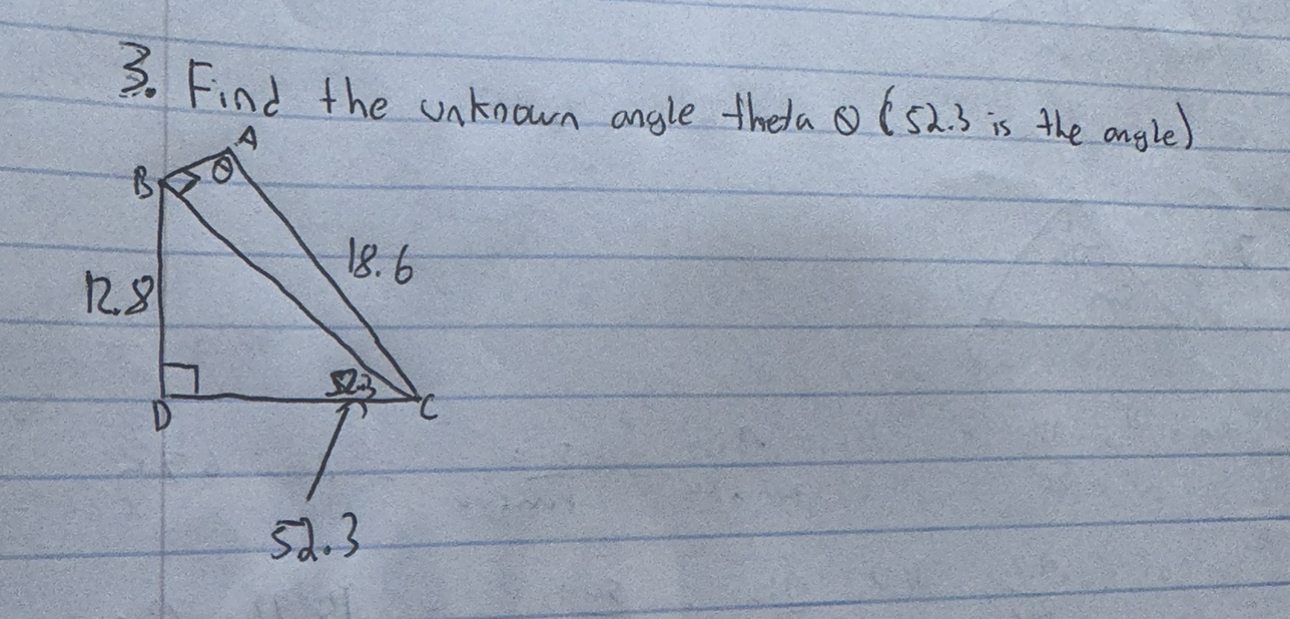 3. Find the unknown angle theta θ (52.3 is the angle)
A
B
θ
18.6
12.8
52.3
D
C
52.3